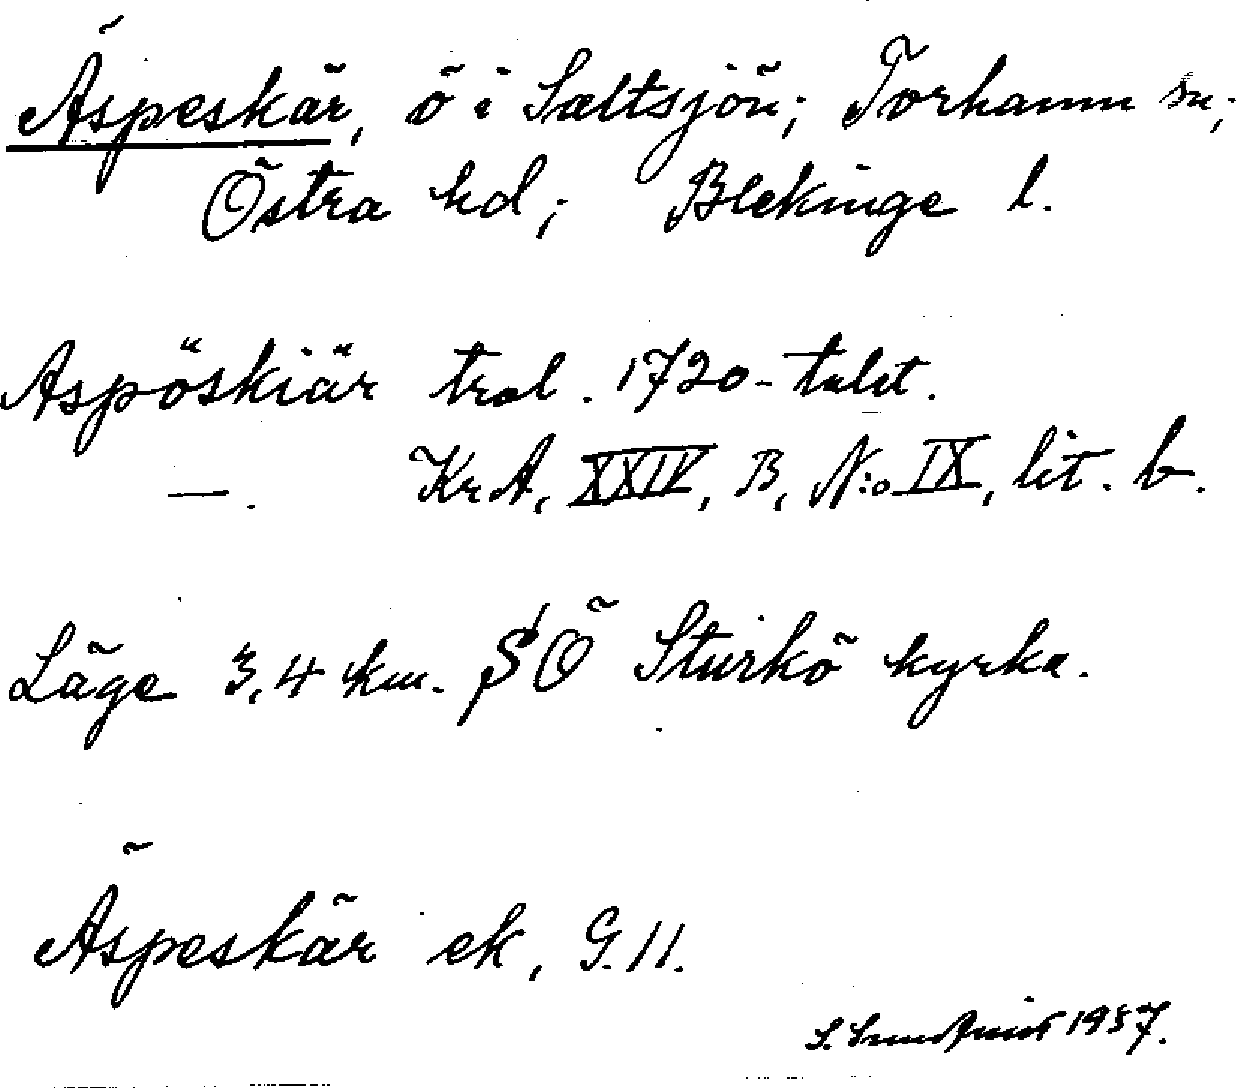 Äspeskär, ö i Saltsjön; Torhamn sn;
Östra hd; Blekinge l.
Aspöskiär trol. 1720-talet.
—. KrA, XXIV, B, N:o IX, lit. b.
Läge 3,4 km. SÖ Sturkö kyrka.
Äspeskär ek, G.11.
S. 1957.